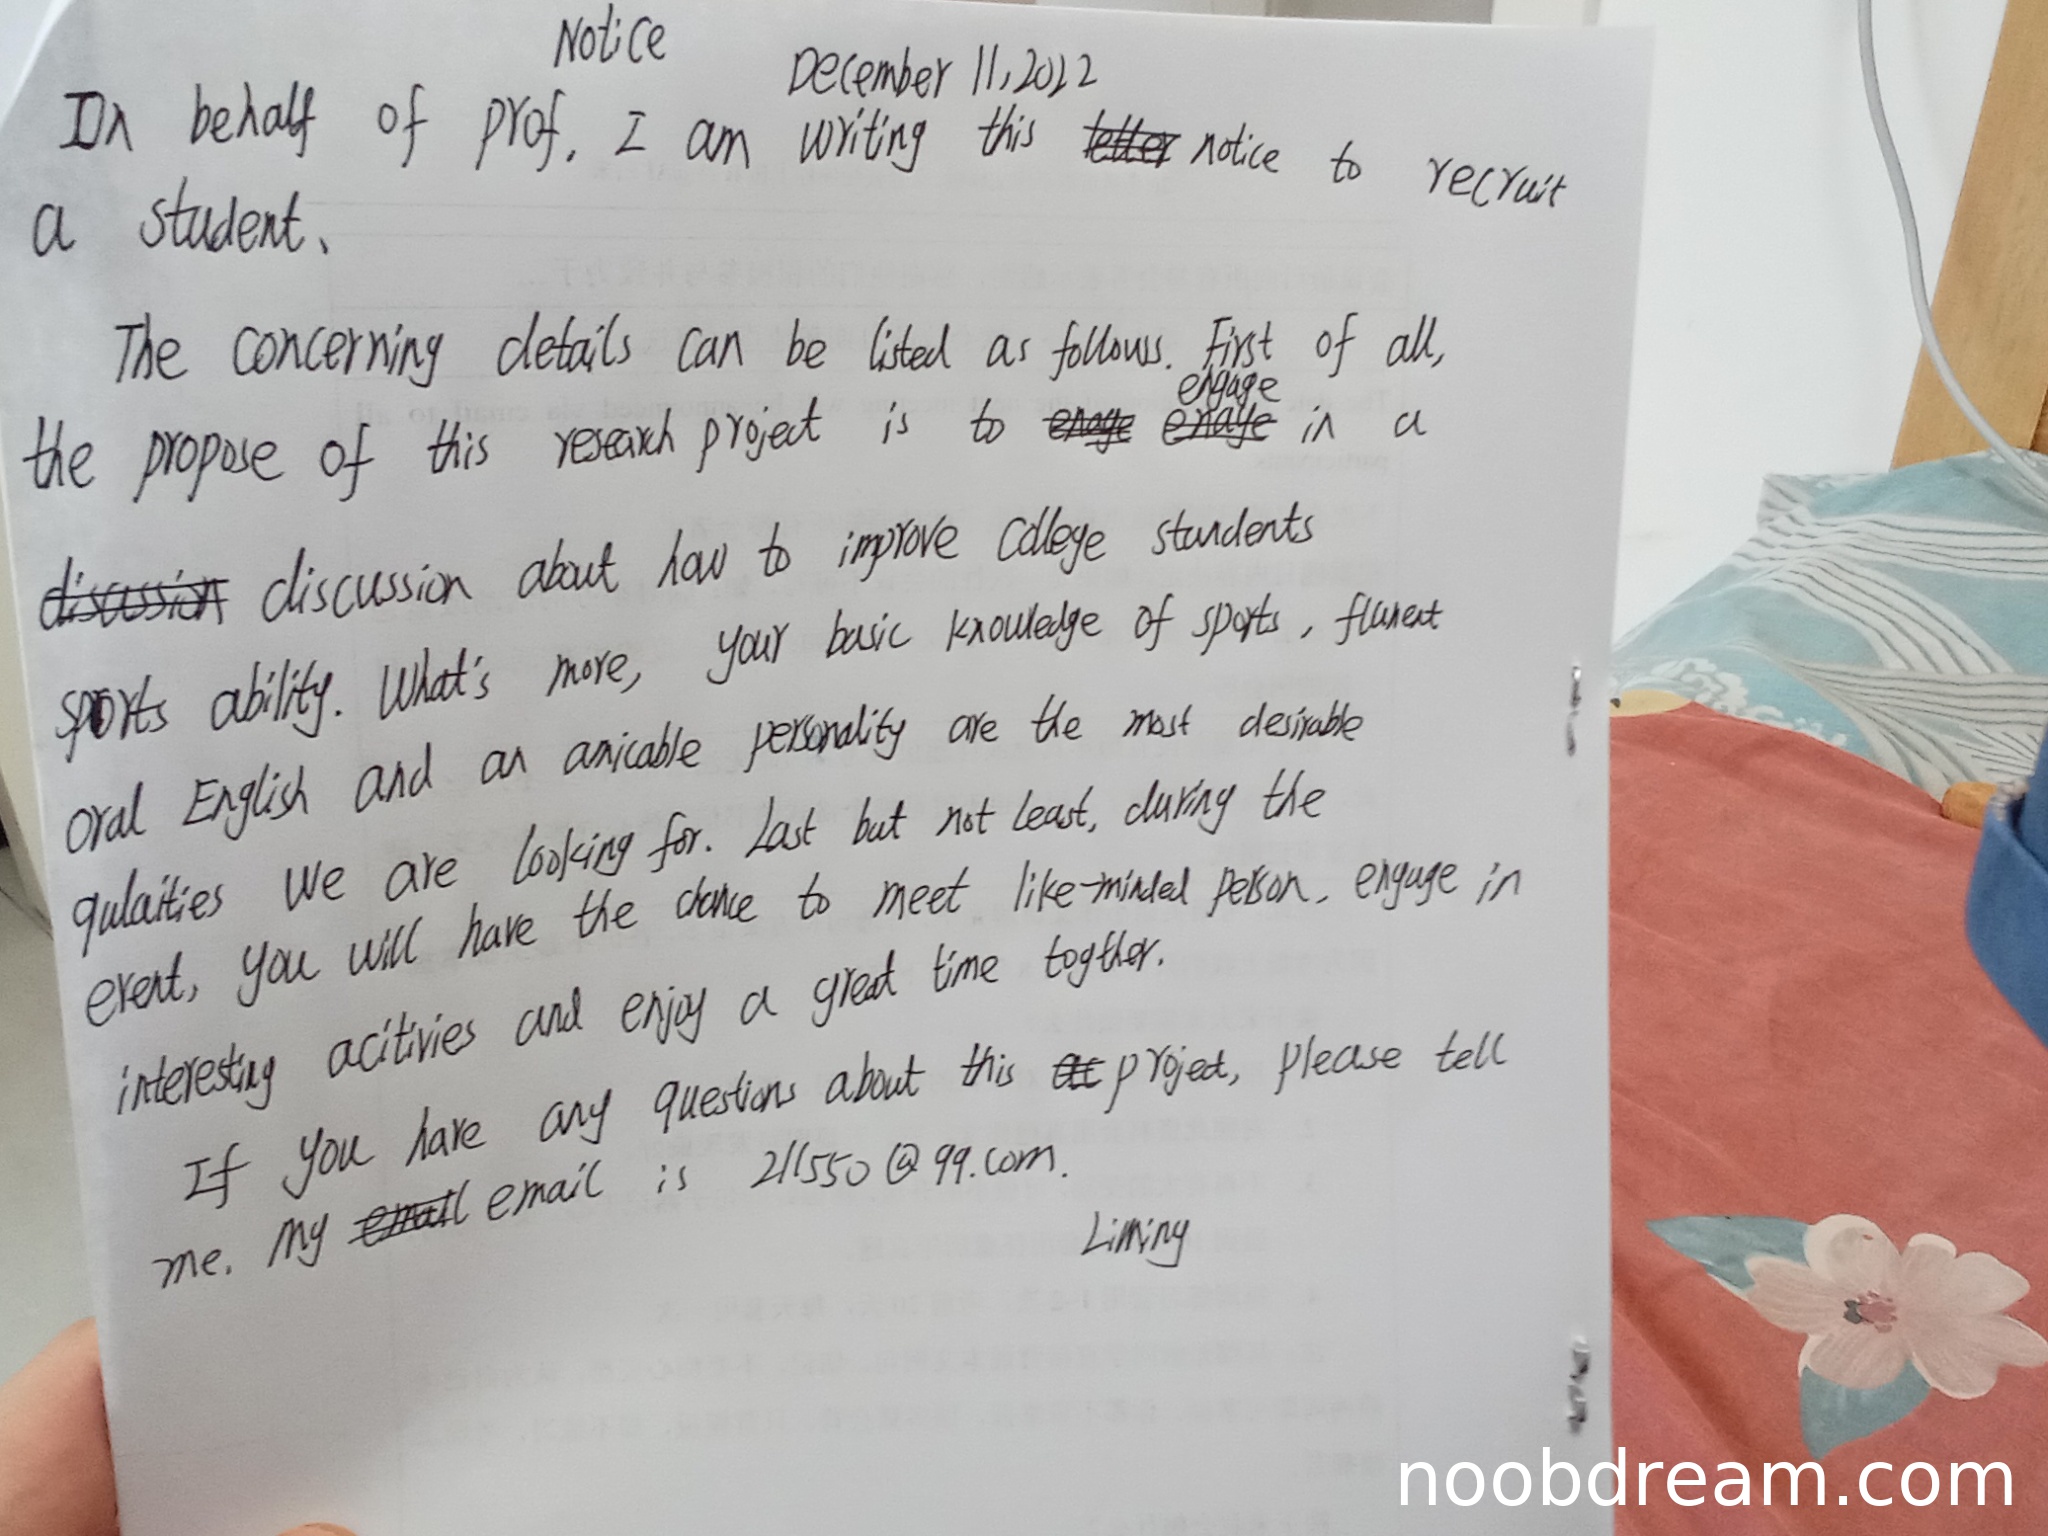 Notice
December 11, 2022
On behalf of prof. I am writing this letter notice to recruit
a student.
The concerning details can be listed as follows. First of all,
engage
the propose of this research project is to enage enage in a
discussion discussion about how to improve college students
sports ability. What's more, your basic knowledge of sports, fluent
oral English and an amicable personality are the most desirable
qulaities we are looking for. Last but not least, during the
event, you will have the chance to meet like-minded person, engage in
interesting acitivies and enjoy a great time togther.
If you have any questions about this project, please tell
me. My email email is 211550@99.com.
Liming
noobdream.com